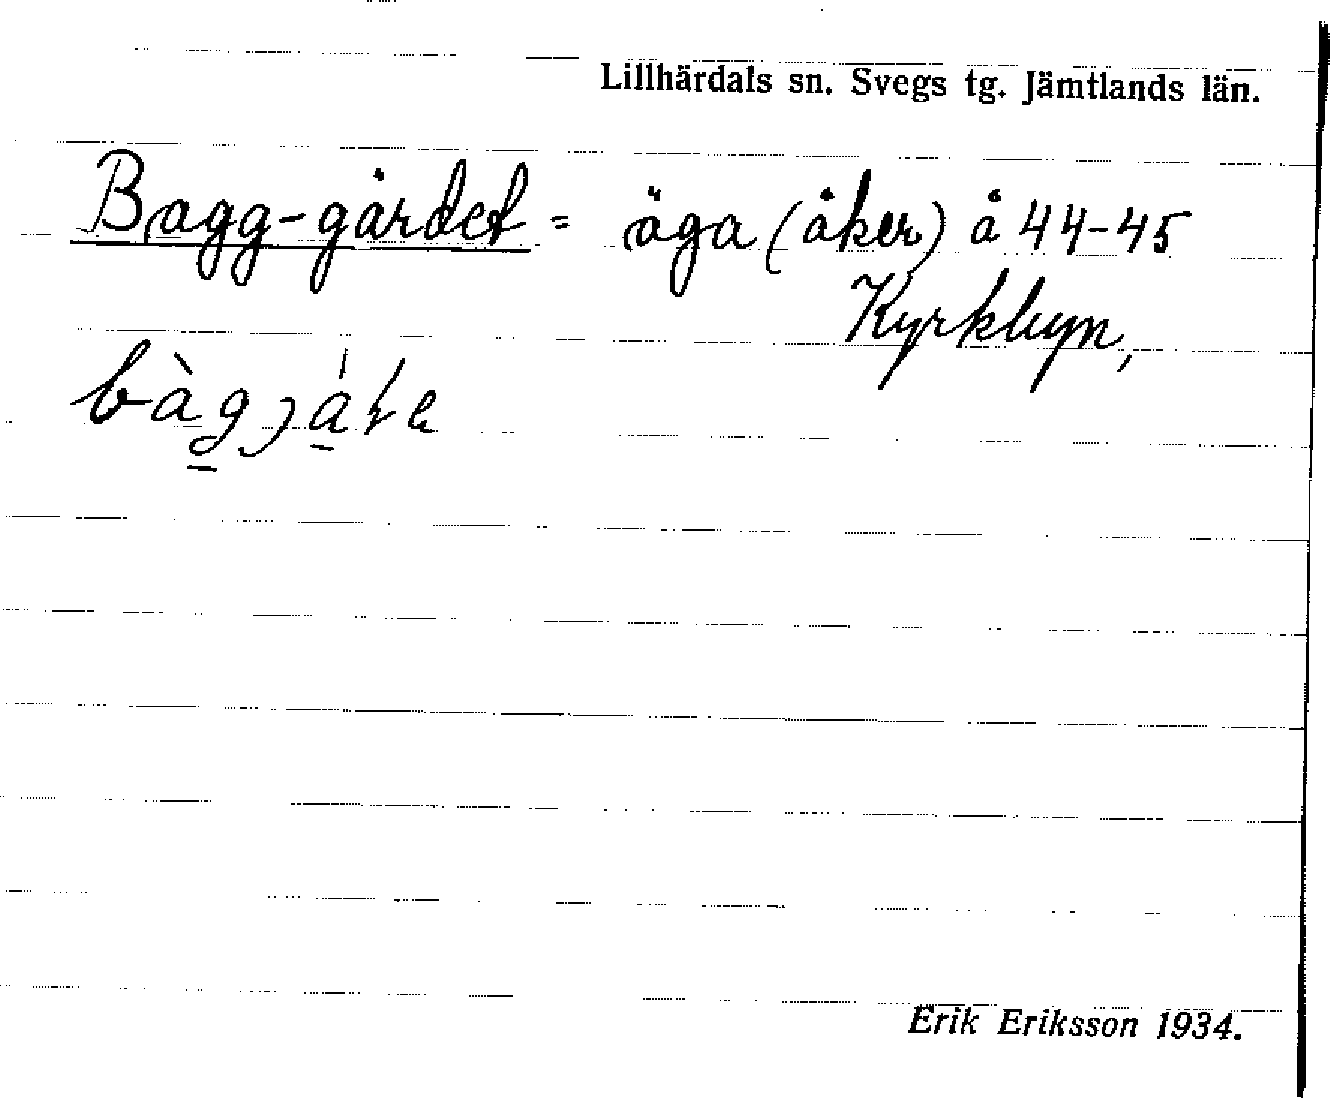 Lillhärdals sn. Svegs tg. Jämtlands län.
Bagg-gärdet = äga (åker) å 44-45
Kyrkbyn,
Erik Eriksson 1934.